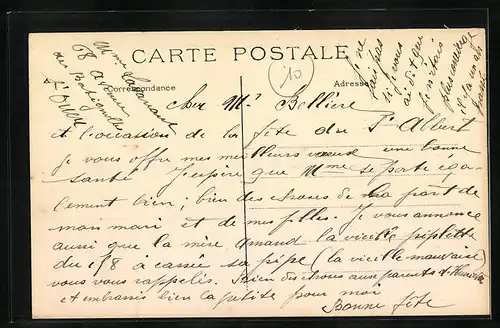 CARTE POSTALE
Correspondance
Adresse
10
Mme
78 Avenue
des Batignolles
St Ouen
Cher Mr Bellière
et l'occasion de la fête du St Albert
je vous offre mes meilleurs voeux une bonne
santé J'espère que Mme se porte éga-
lement bien; bien des choses de la part de
mon mari et de mes filles. Je vous annonce
aussi que la mère Amand la vieille pipelette
du 78 à cassée sa pipe (la vieille mauvaise)
vous vous rappelés. Bien des choses aux parents d'
et embrassés bien la petite pour moi
Bonne fête
je ne
sai pas
si je vous
ai dit que
je n'étais
plus concierge